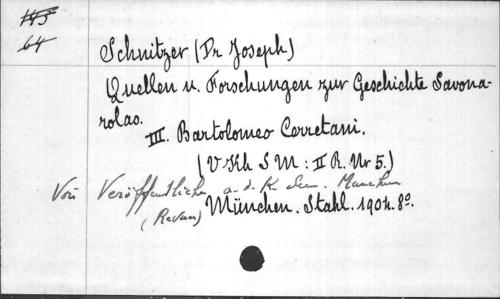 145
64
Schnitzer (Dr Joseph)
Quellen u. Forschungen zur Geschichte Savona-
rolas.
III. Bartolomeo Cerretani.
(VKh SM: II R. Nr 5.)
Von Veröffentlich. a. d. K München
(Revue) München. Stahl. 1904. 8º.